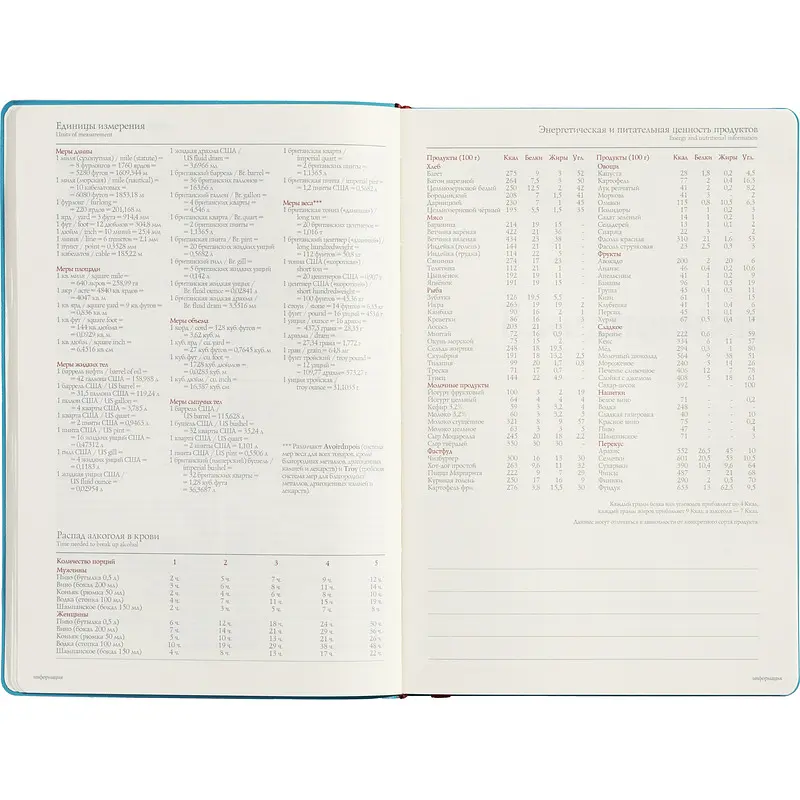 Единицы измерения
Units of measurement
Меры длины
1 миля (сухопутная) / mile (statute) =
= 8 фурлонгов = 1760 ярдов =
= 5280 футов = 1609,344 м
1 миля (морская) / mile (nautical) =
= 10 кабельтовых =
= 6080 футов = 1853,18 м
1 фурлонг / furlong =
= 220 ярдов = 201,168 м
1 ярд / yard = 3 фута = 914,4 мм
1 фут / foot = 12 дюймов = 304,8 мм
1 дюйм / inch = 10 линий = 25,4 мм
1 линия / line = 6 пунктов = 2,1 мм
1 пункт / point = 0,3528 мм
1 кабельтов / cable = 185,22 м
Меры площади
1 кв. миля / square mile =
= 640 акров = 258,99 га
1 акр / acre = 4840 кв. ярдов =
= 4047 кв. м
1 кв. ярд / square yard = 9 кв. футов =
= 0,836 кв. м
1 кв. фут / square foot =
= 144 кв. дюйма =
= 0,0929 кв. м
1 кв. дюйм / square inch =
= 6,4516 кв. см
Меры жидких тел
1 баррель нефти / barrel of oil =
= 42 галлона США = 158,988 л
1 баррель США / US barrel =
= 31,5 галлона США = 119,24 л
1 галлон США / US gallon =
= 4 кварты США = 3,785 л
1 кварта США / US quart =
= 2 пинты США = 0,9463 л
1 пинта США / US pint =
= 16 жидких унций США =
= 0,47312 л
1 гилл США / US gill =
= 4 жидких унций США =
= 0,1183 л
1 жидкая унция США /
US fluid ounce =
= 0,02954 л
1 жидкая драхма США /
US fluid dram =
= 3,6966 мл
1 британский баррель / Br. barrel =
= 36 британских галлонов =
= 163,66 л
1 британский галлон / Br. gallon =
= 4 британских кварты =
= 4,546 л
1 британская кварта / Br. quart =
= 2 британских пинты =
= 1,1365 л
1 британская пинта / Br. pint =
= 20 британских жидких унций =
= 0,5682 л
1 британский гилл / Br. gill =
= 5 британских жидких унций =
= 0,142 л
1 британская жидкая унция /
Br. fluid ounce = 0,02841 л
1 британская жидкая драхма /
Br. fluid dram = 3,5516 мл
Меры объема
1 корд / cord = 128 куб. футов =
= 3,62 куб. м
1 куб. ярд / cu. yard =
= 27 куб. футов = 0,7645 куб. м
1 куб. фут / cu. foot =
= 1728 куб. дюймов =
= 0,0283 куб. м
1 куб. дюйм / cu. inch =
= 16,387 куб. см
Меры сыпучих тел
1 баррель США /
US barrel = 115,628 л
1 бушель США / US bushel =
= 32 кварты США = 35,24 л
1 кварта США / US quart =
= 2 пинты США = 1,101 л
1 пинта США / US pint = 0,5506 л
1 британский (имперский) бушель /
imperial bushel =
= 32 британских кварты =
= 1,28 куб. фута =
= 36,3687 л
1 британская кварта /
imperial quart =
= 2 британских пинты =
= 1,1365 л
1 британская пинта / imperial pint =
= 1,2 пинты США = 0,5682 л
Меры веса***
1 британская тонна «длинная» /
long ton =
= 20 британских центнеров =
= 1,016 т
1 британский центнер «длинный» /
long hundredweight =
= 112 фунтов = 50,8 кг
1 тонна США «короткая» /
short ton =
= 20 центнеров США = 0,907 т
1 центнер США «короткий» /
short hundredweight =
= 100 фунтов = 45,36 кг
1 стоун / stone = 14 фунтов = 6,35 кг
1 фунт / pound = 16 унций = 451,6 г
1 унция / ounce = 16 драхм =
= 437,5 грана = 28,35 г
1 драхма / dram =
= 27,34 грана = 1,772 г
1 гран / grain = 64,8 мг
1 фунт тройский / troy pound =
= 12 унций =
= 109,77 драхмы = 373,27 г
1 унция тройская /
troy ounce = 31,1035 г
*** Различают Avoirdupois (система
мер веса для всех товаров, кроме
благородных металлов, драгоценных
камней и лекарств) и Troy (тройская
система мер для благородных
металлов, драгоценных камней и
лекарств).
Распад алкоголя в крови
Time needed to break up alcohol
Количество порций 1 2 3 4 5
Мужчины
Пиво (бутылка 0,5 л) 2 ч. 5 ч. 7 ч. 9 ч. 12 ч.
Вино (бокал 200 мл) 3 ч. 6 ч. 8 ч. 11 ч. 14 ч.
Коньяк (рюмка 50 мл) 2 ч. 4 ч. 6 ч. 8 ч. 10 ч.
Водка (стопка 100 мл) 4 ч. 7 ч. 11 ч. 15 ч. 19 ч.
Шампанское (бокал 150 мл) 2 ч. 3 ч. 5 ч. 7 ч. 8 ч.
Женщины
Пиво (бутылка 0,5 л) 6 ч. 12 ч. 18 ч. 24 ч. 30 ч.
Вино (бокал 200 мл) 7 ч. 14 ч. 21 ч. 29 ч. 36 ч.
Коньяк (рюмка 50 мл) 5 ч. 10 ч. 13 ч. 21 ч. 26 ч.
Водка (стопка 100 мл) 10 ч. 19 ч. 29 ч. 38 ч. 48 ч.
Шампанское (бокал 150 мл) 4 ч. 8 ч. 13 ч. 17 ч. 22 ч.
информация
Энергетическая и питательная ценность продуктов
Energy and nutritional information
Продукты (100 г) Ккал Белки Жиры Угл.
Хлеб
Багет 275 9 3 52
Батон нарезной 264 7,5 3 50
Цельнозерновой белый 230 12,5 2 42
Бородинский 208 7 1,5 41
Дарницкий 230 7 1 45
Цельнозерновой черный 195 5,5 1,5 35
Мясо
Баранина 214 19 15 -
Ветчина вареная 422 21 36 -
Ветчина вяленая 434 23 38 -
Индейка (голень) 144 21 11 -
Индейка (грудка) 114 22 5 -
Свинина 274 17 23 -
Телятина 112 21 1 -
Цыпленок 192 19 11 -
Ягнёнок 191 19 13 -
Рыба
Зубатка 126 19,5 5,5 -
Икра 263 26 19 2
Камбала 90 16 2 1
Креветки 86 16 1 3
Лосось 203 21 13 -
Минтай 72 16 0,9 -
Окунь морской 75 15 2 -
Сельдь жирная 248 18 19,5 -
Скумбрия 191 18 13,2 2,5
Тилапия 99 20 1,7 0,8
Треска 71 17 0,7 -
Тунец 144 22 4,9 -
Молочные продукты
Йогурт фруктовый 100 3 2 19
Йогурт цельный 64 4 4 4
Кефир 3,2% 59 3 3,2 4
Молоко 3,2% 60 3 3,2 5
Молоко сгущённое 321 8 9 57
Молоко цельное 61 3 3 3
Сыр Моцарелла 245 20 18 2,2
Сыр твёрдый 350 30 30 -
Фастфуд
Чизбургер 300 16 13 30
Хот-дог простой 263 9,6 11 32
Пицца Маргарита 222 9 7 29
Куриная голень 250 17 16 9
Картофель фри 276 3,8 15,5 30
Продукты (100 г) Ккал Белки Жиры Угл.
Овощи
Капуста 28 1,8 0,2 4,5
Картофель 77 2 0,4 16,3
Лук репчатый 41 2 0,2 5,2
Морковь 41 3 2
Оливки 115 0,8 10,5 6,3
Помидоры 17 1 0,2 3
Салат зеленый 14 1 0,2 1
Сельдерей 13 1 0,1 2
Спаржа 22 3 - 2
Фасоль красная 310 21 1,6 53
Фасоль стручковая 23 2,5 0,3 3
Фрукты
Авокадо 200 2 20 6
Ананас 46 0,4 0,2 10,6
Апельсины 41 1 0,2 9
Бананы 96 1 0,5 19
Груши 43 0,4 0,3 11
Киви 61 1 - 15
Клубника 41 1 0,4 6
Персик 45 1 0,1 9,5
Хурма 67 0,5 0,4 14
Сладкое
Варенье 222 0,6 - 59
Кекс 334 6 11 57
Мёд 294 0,3 1 80
Молочный шоколад 564 9 38 51
Мороженое 240 5 14 26
Печенье сливочное 406 12 7 78
Слойка с джемом 408 5 18 61
Сахар-песок 392 - - 100
Напитки
Белое вино 71 - - 0,2
Водка 248 - - -
Сладкая газировка 40 - - 10
Красное вино 75 - - 0,2
Пиво 47 - - 4
Шампанское 71 - - 3
Перекус
Арахис 552 26,5 45 10
Семечки 601 20,5 53 10,5
Сухарики 390 10,4 9,6 64
Чипсы 487 7 21 68
Финики 290 2 0,5 70
Фундук 653 13 62,5 9,5
Каждый грамм белка или углеводов прибавляет по 4 Ккал,
каждый грамм жиров прибавляет 9 Ккал, а алкоголя — 7 Ккал.
Данные могут отличаться в зависимости от конкретного сорта продукта
информация